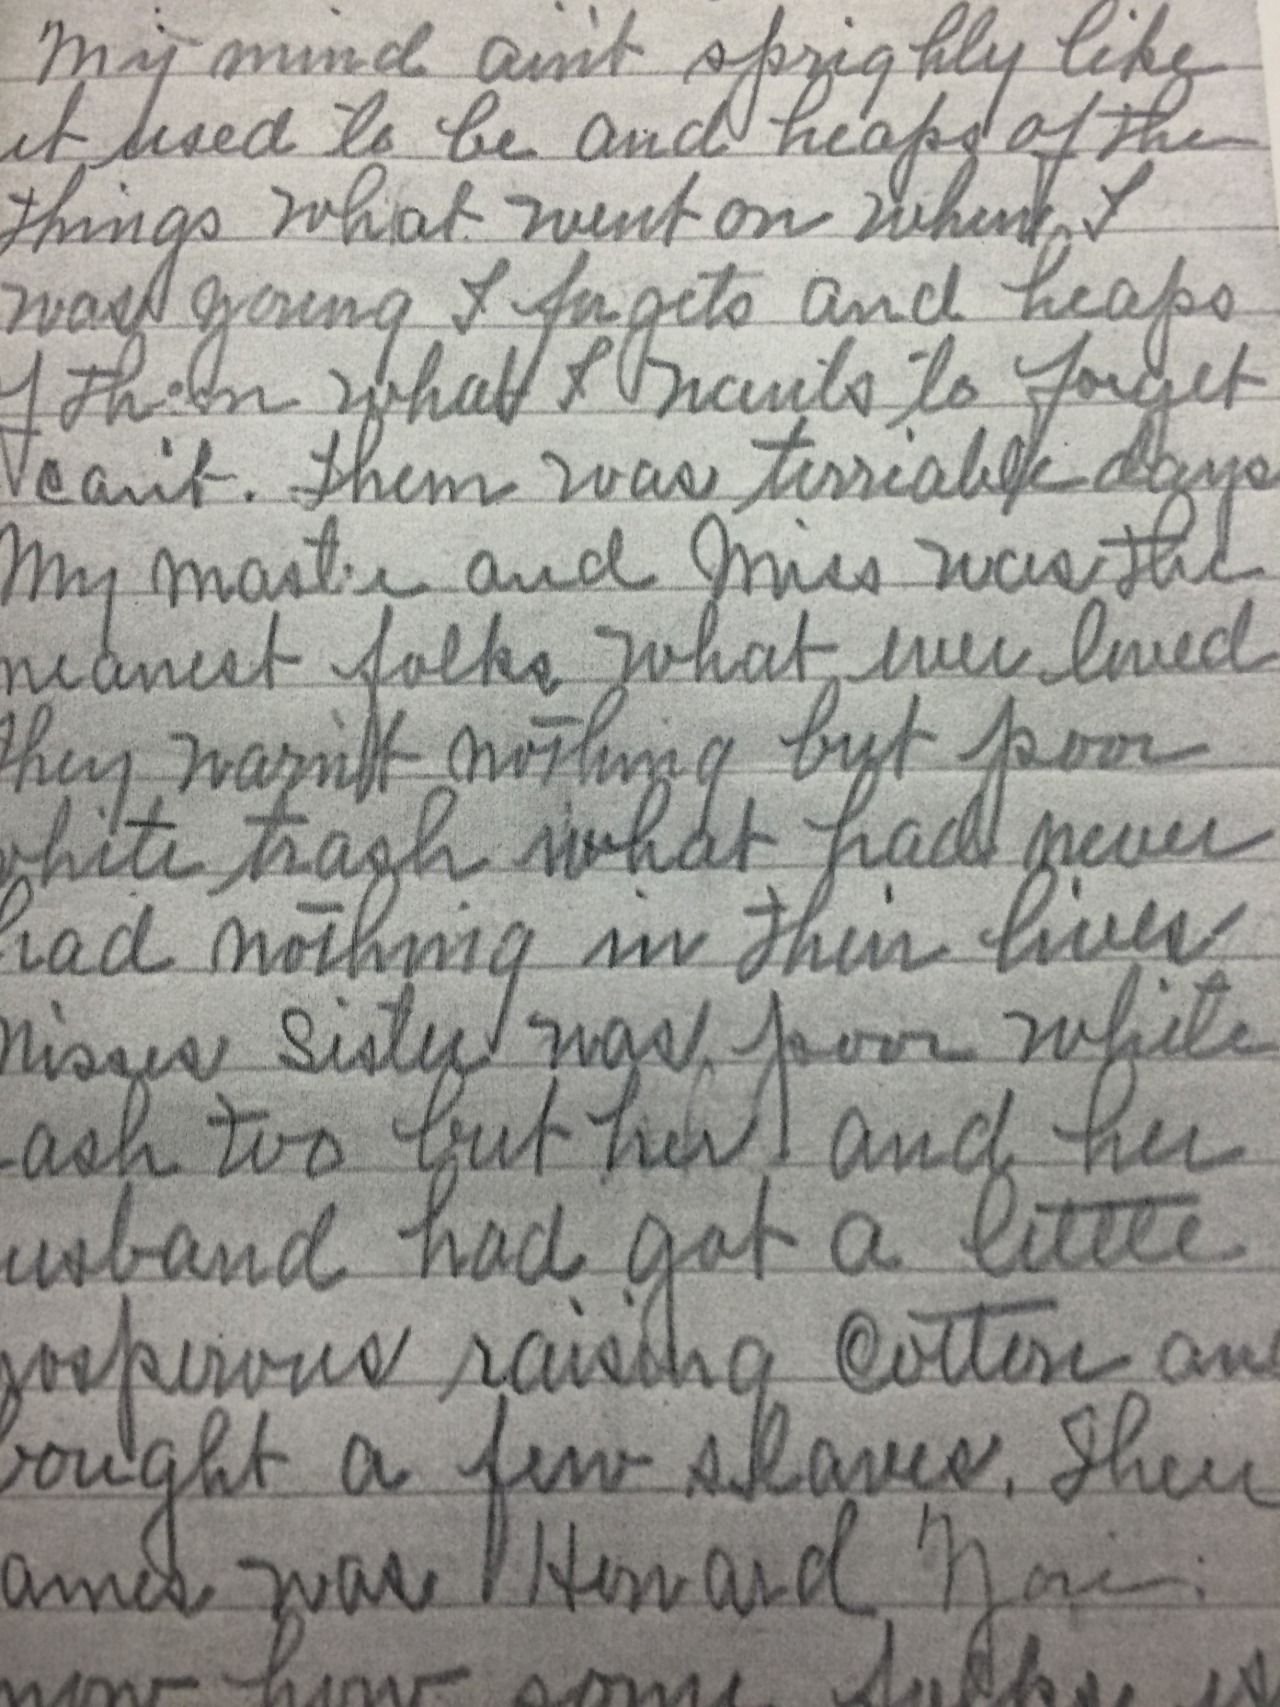 My mind ain't sprighly like
it used to be and heaps of the
things what went on when I
was young I forgets and heaps
of them what I wants to forget
I can't. Them was terriable days
My master and Miss was the
meanest folks what ever lived
they warn't nothing but poor
white trash what had never
had nothing in their lives
Misses Sister was poor white
ash too but her and her
usband had got a little
rosperous raising Cotton and
bought a few slaves. Their
ames was Howard
now how some folks is